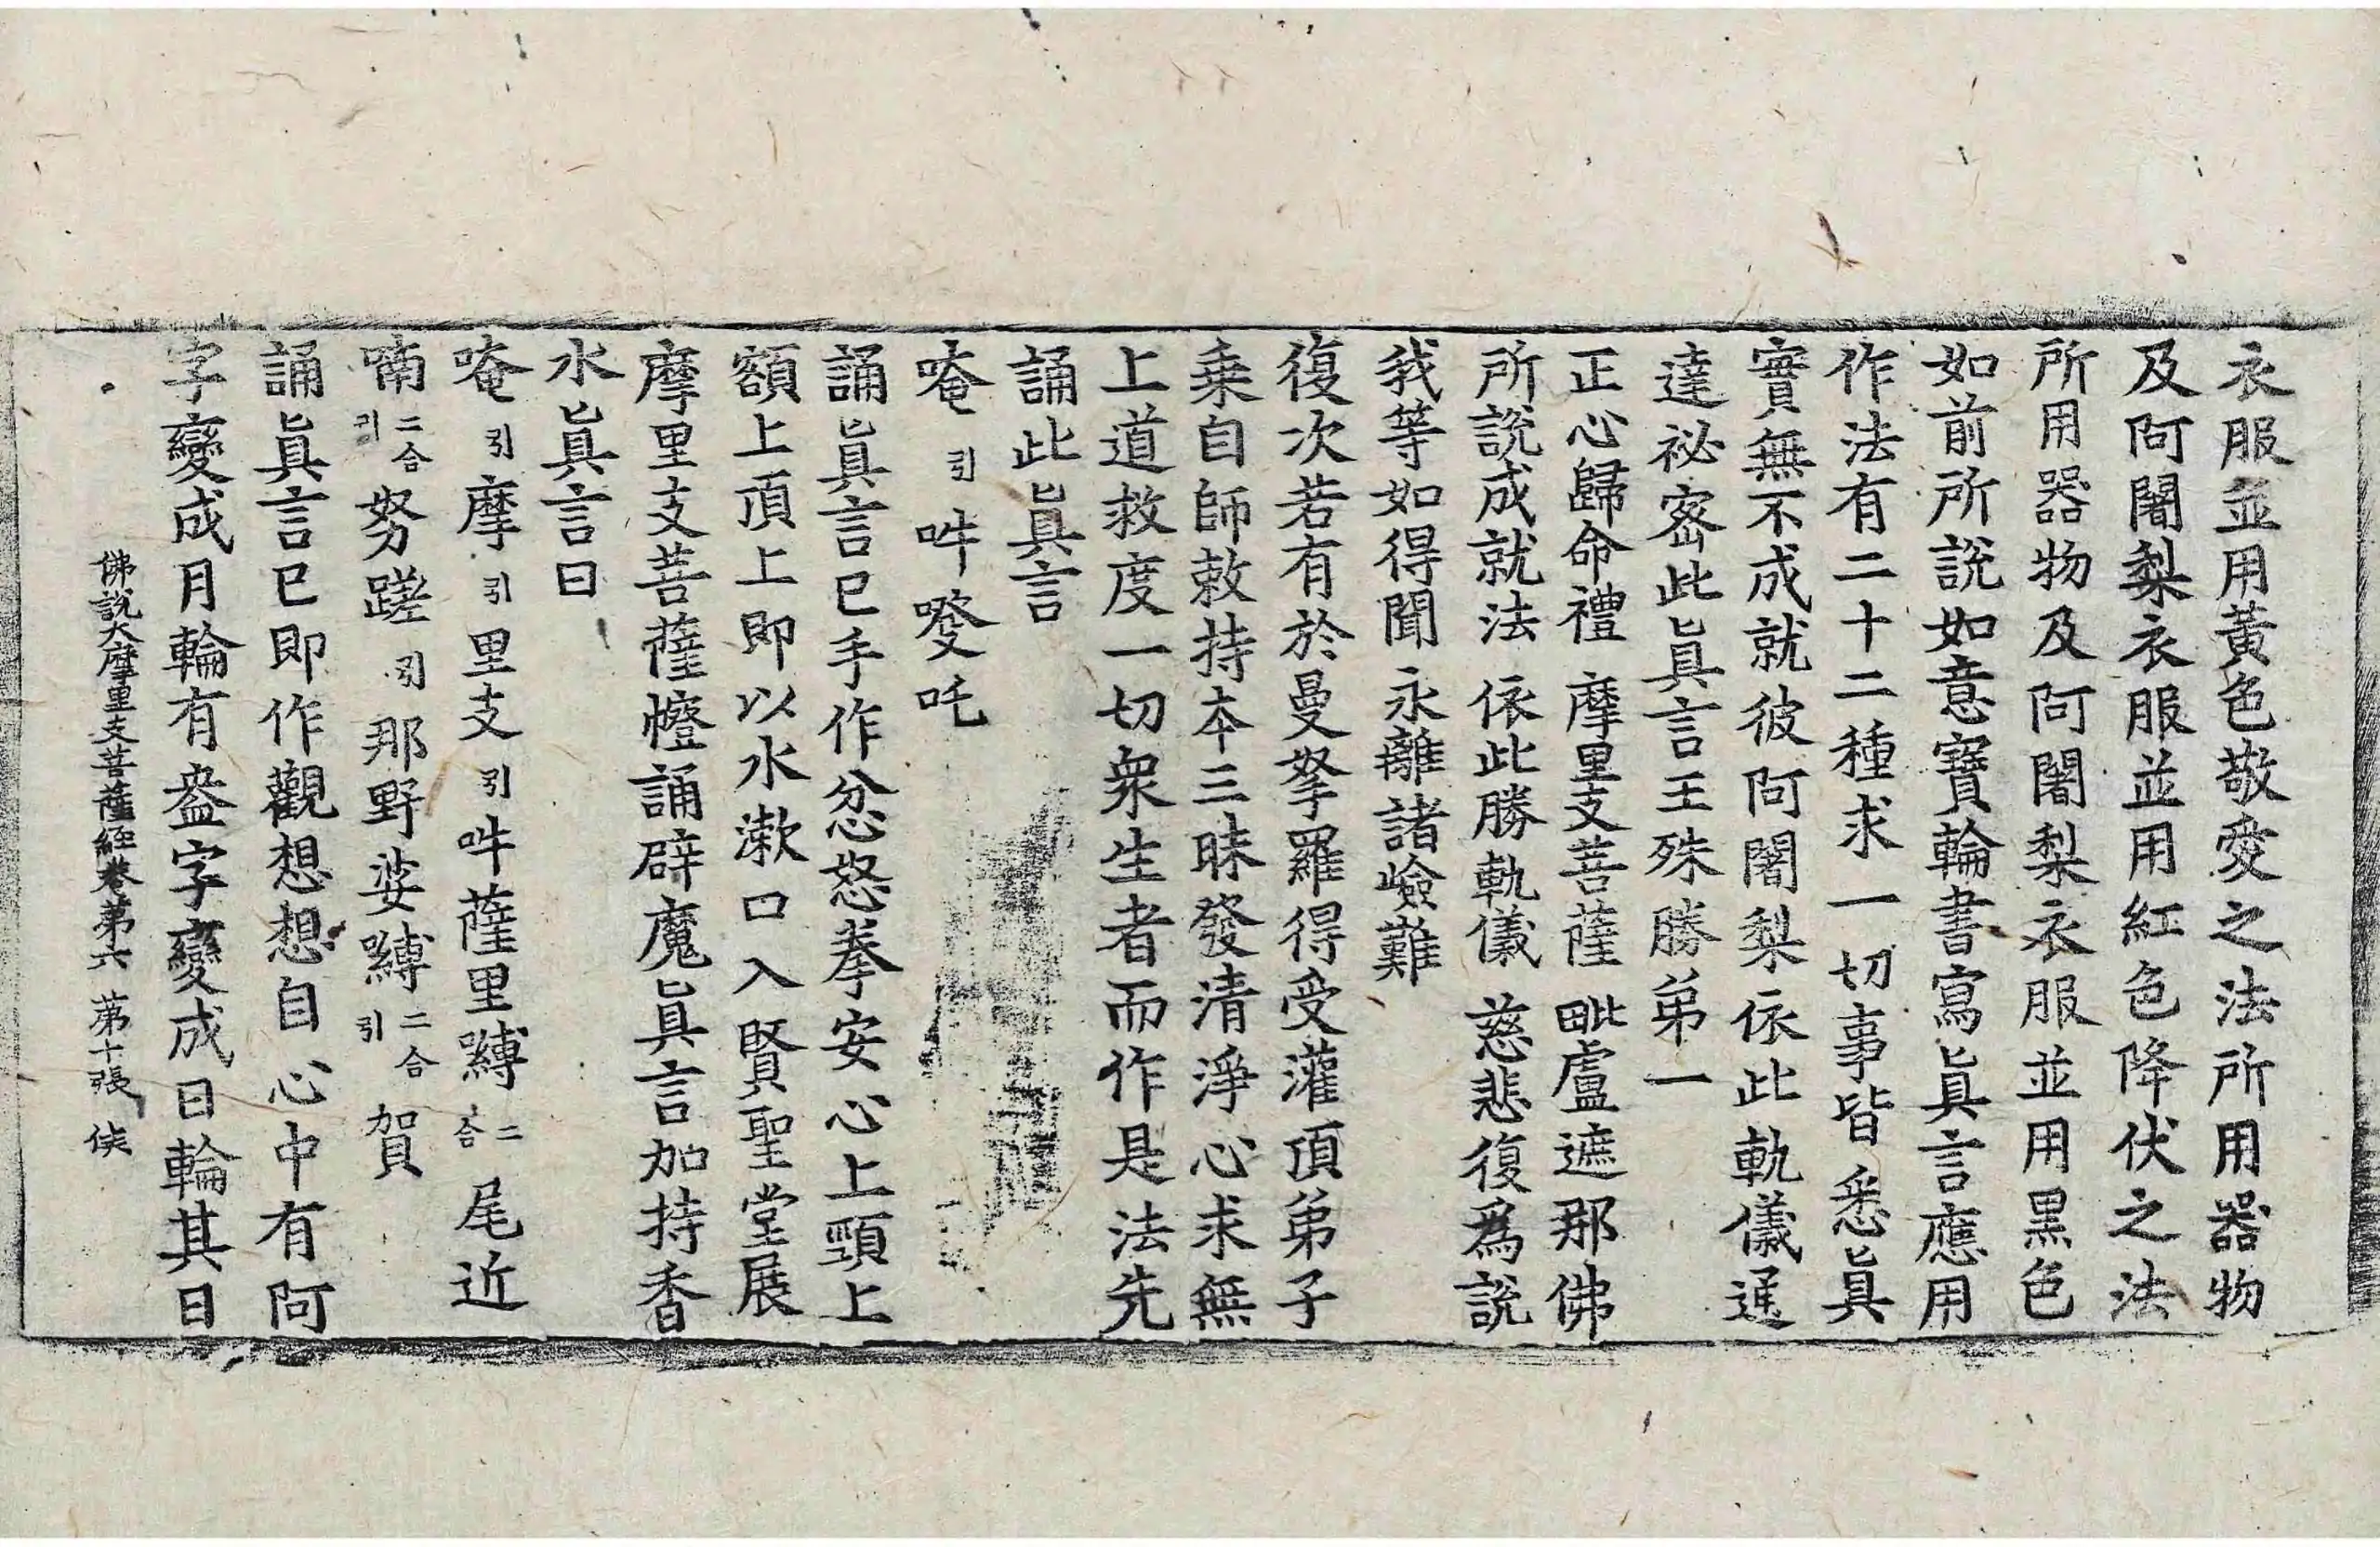 衣服並用黃色敬愛之法所用器物
及阿闍梨衣服並用紅色降伏之法
所用器物及阿闍梨衣服並用黑色
如前所說如意寶輪書寫眞言應用
作法有二十二種求一切事皆悉眞
實無不成就彼阿闍梨依此軌儀通
達祕密此眞言王殊勝弟一
正心歸命禮 摩里支菩薩 毗盧遮那佛
所說成就法 依此勝軌儀 慈悲復爲說
我等如得聞 永離諸嶮難
復次若有於曼拏羅得受灌頂弟子
乗自師敕持本三昧發清淨心求無
上道救度一切衆生者而作是法先
誦此眞言
唵引吽癹吒
誦眞言已手作忿怒拳安心上頸上
額上頂上即以水漱口入賢聖堂展
摩里支菩薩㡧誦辟魔眞言加持香
水眞言曰
唵引摩引里支引吽薩里嚩二合尾近
喃二合引努蹉引那野娑嚩二合引賀
誦眞言已即作觀想想自心中有阿
字變成月輪有㘕字變成日輪其日
佛說大摩里支菩薩經卷第六 第十張 俠